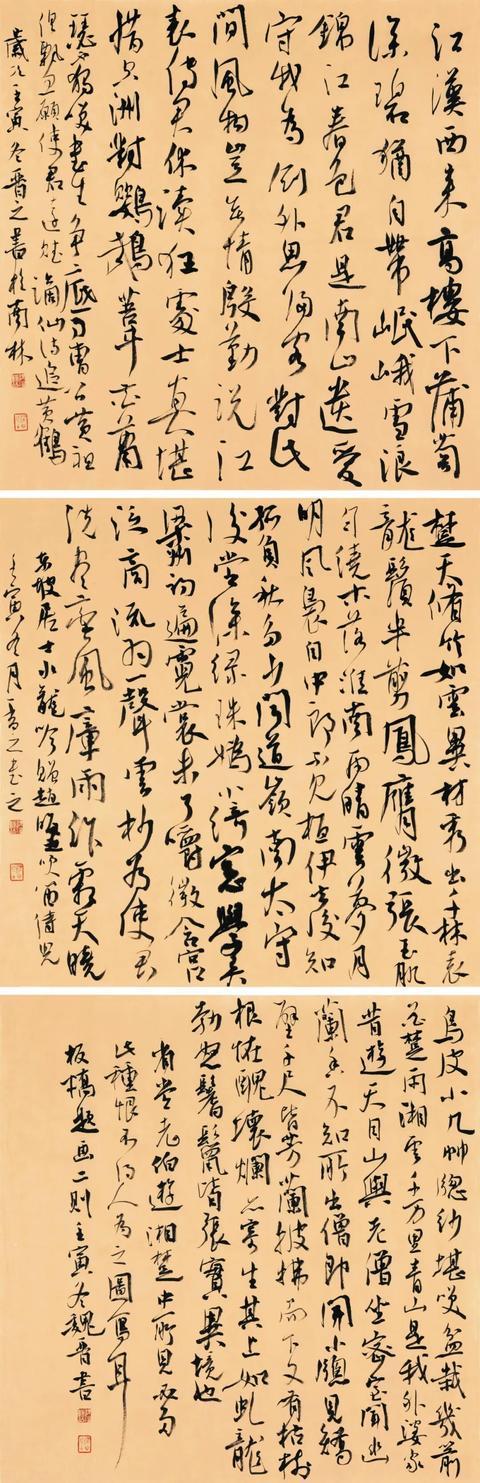 江漢西來高樓下蒲萄
深碧猶自帶岷峨雪浪
錦江春色君是南山遺愛
守我為劍外思歸客對此
間風物豈無情殷勤說江
表傳君休讀狂處士真堪
惜空洲對鸚鵡葦花蕭
瑟不獨笑書生爭底事曹公黃祖
俱飄忽願使君還賦謫仙詩追黃鶴
歲次壬寅冬晉之書於南林
楚天脩竹如雲異材秀出千林表
龍鬚半剪鳳膺微張玉肌
勻繞木落淮南雨晴雲夢月
明風裊自中郎不見桓伊去後知
孤負秋多少聞道嶺南太守
後堂深綠珠嬌小綺窗學弄
梁州初遍霓裳未了嚼徵含宮
泛商流羽一聲雲杪為使君
洗盡蠻風瘴雨作霜天曉
東坡居士小龍吟贈趙晦之吹笛侍兒
壬寅冬月晉之書之
烏皮小几竹窗紗堪笑盆栽幾箭
花楚雨湘雲千萬里青山是我外婆家
昔遊天目山與老僧坐密室聞幽
蘭香不知所出僧即開小窗見矯
壁千尺皆芳蘭披拂而下又有枯樹
根怪醜壞爛亦寄生其上如虬龍
勃怒鬐鬣皆張實異境也
有堂老伯遊湘楚中所見必多
此種恨不得人為之圖寫耳
板橋題画二則壬寅冬魏晉書